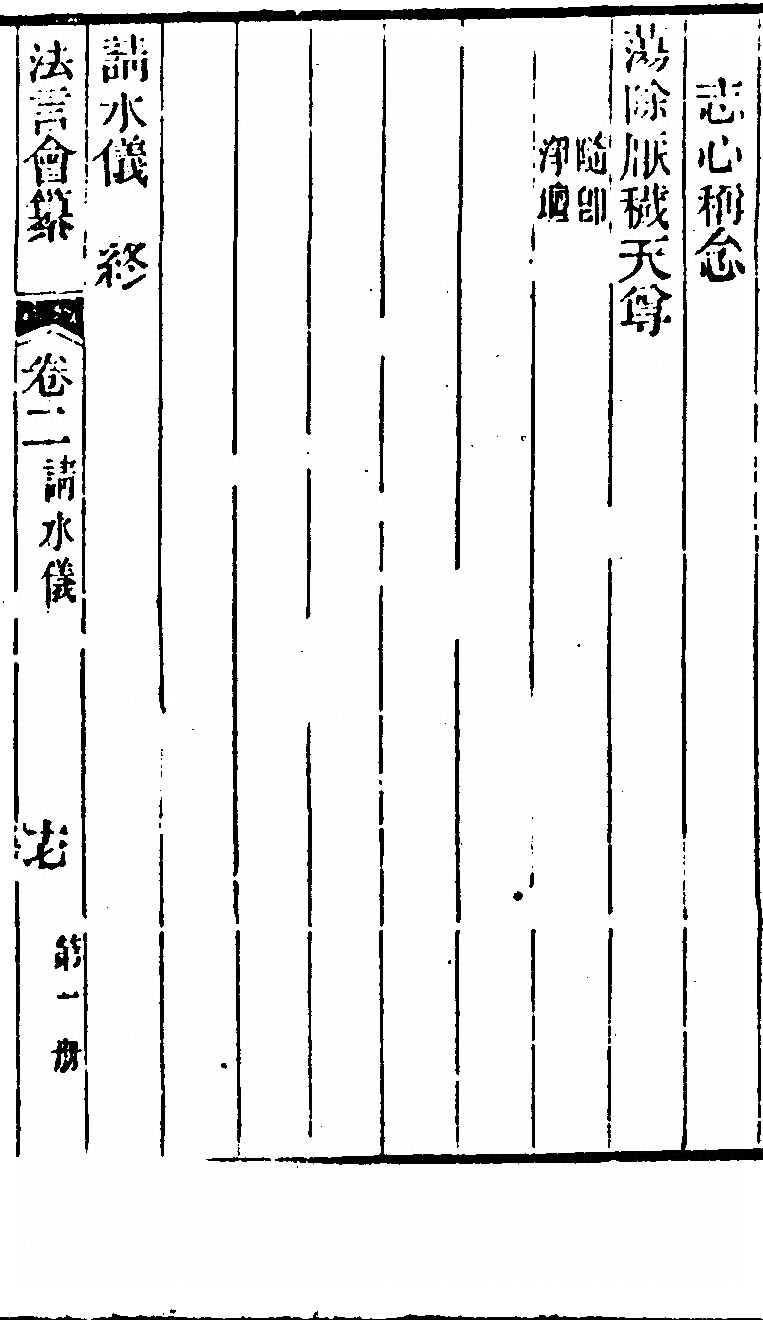 志心稱念
蕩除厭穢天尊
隨卽
淨壇
請水儀 終
法言會纂
卷二
請水儀
第一册